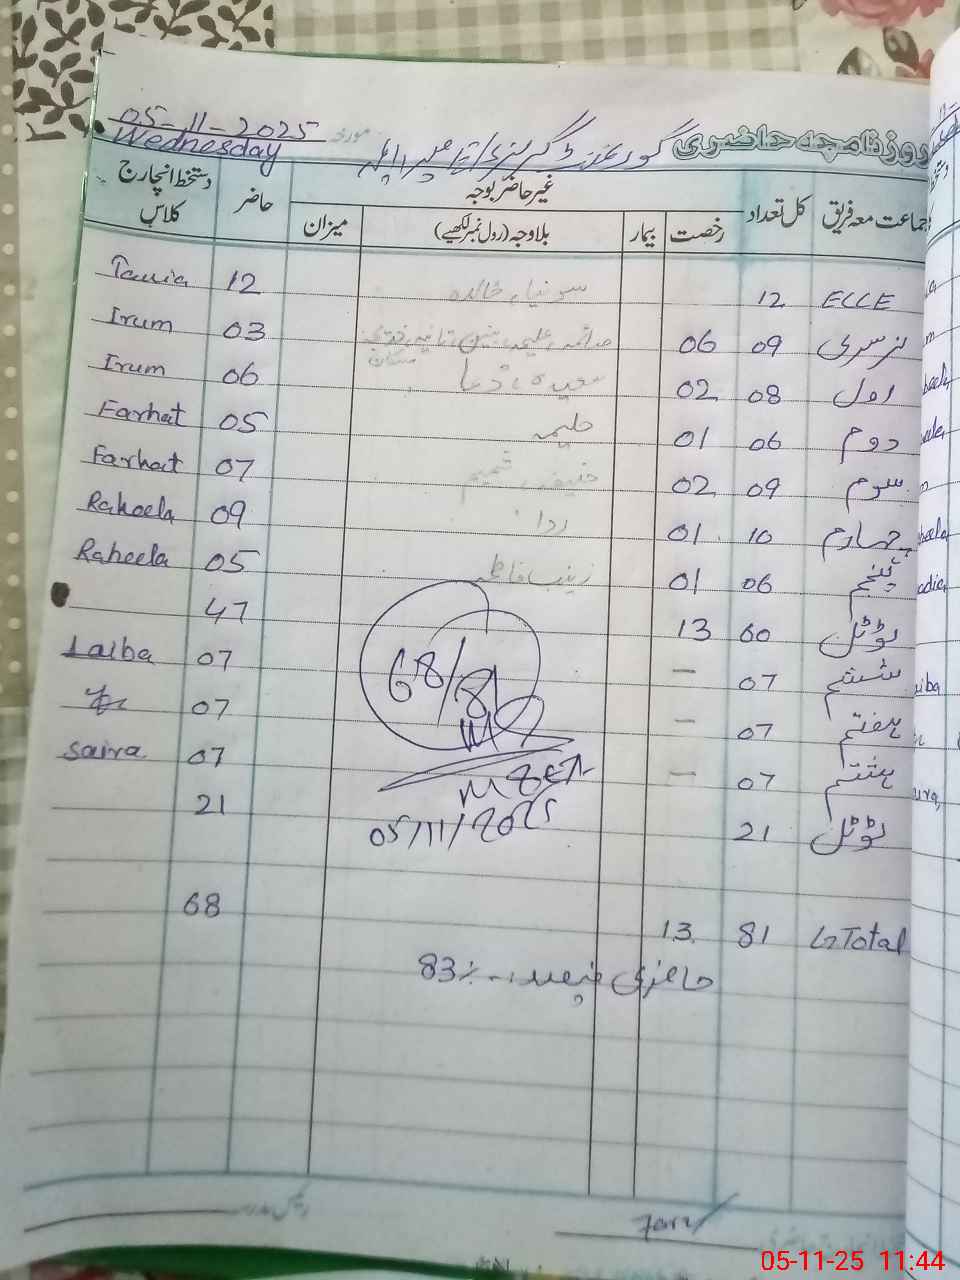 05-11-2025
Wednesday
روزنامچہ حاضری
مورخہ
گورنمنٹ گرلز
جماعت معہ فریق
کل تعداد
غیر حاضر بوجہ
رخصت
بیمار
بلاوجہ (رول نمبر لکھیے)
میزان
حاضر
دستخط انچارج کلاس
ECCE 12 سونیا، خالدہ 12 Tania
نرسری 09 06 03 Irum
مسکان
اول 08 02 06 Irum
دوم 06 01 حلیمہ 05 Farhat
سوم 09 02 حنیفہ، شمیم 07 Farhat
چہارم 10 01 ردا 09 Raheela
پنجم 06 01 زینب، فاطمہ 05 Raheela
ٹوٹل 60 13 47
ششم 07 — 07 Laiba
ہفتم 07 — 07
ہشتم 07 — 07 Saira
ٹوٹل 21 21
68/81
05/11/2025
G Total 81 13 68
حاضری فیصد :- 83%
05-11-25 11:44